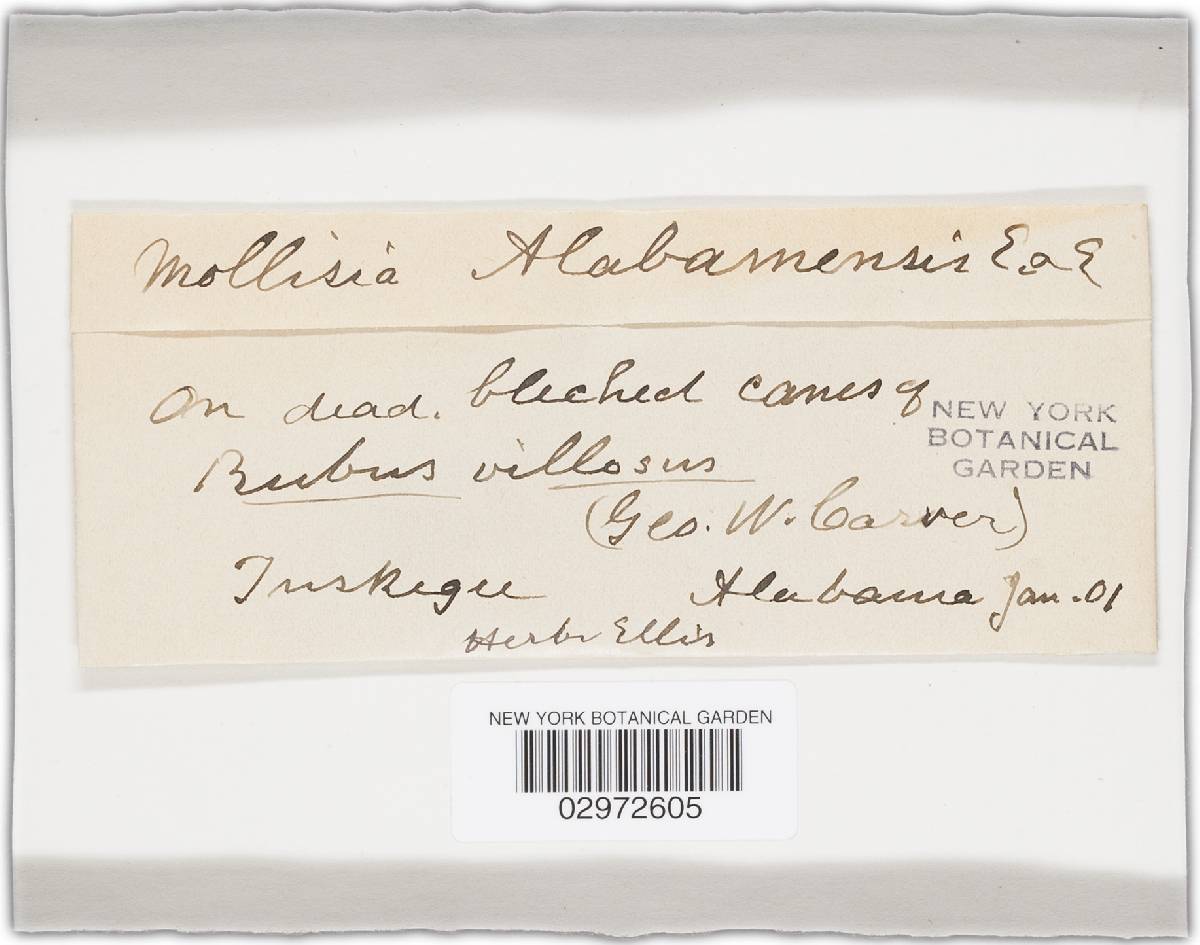 Mollisia Alabamensis E & E
On dead. bleched canes of
Rubus villosus
NEW YORK
BOTANICAL
GARDEN
(Geo. W. Carver)
Tuskegee Alabama Jan. 01
Herb Ellis
NEW YORK BOTANICAL GARDEN
02972605